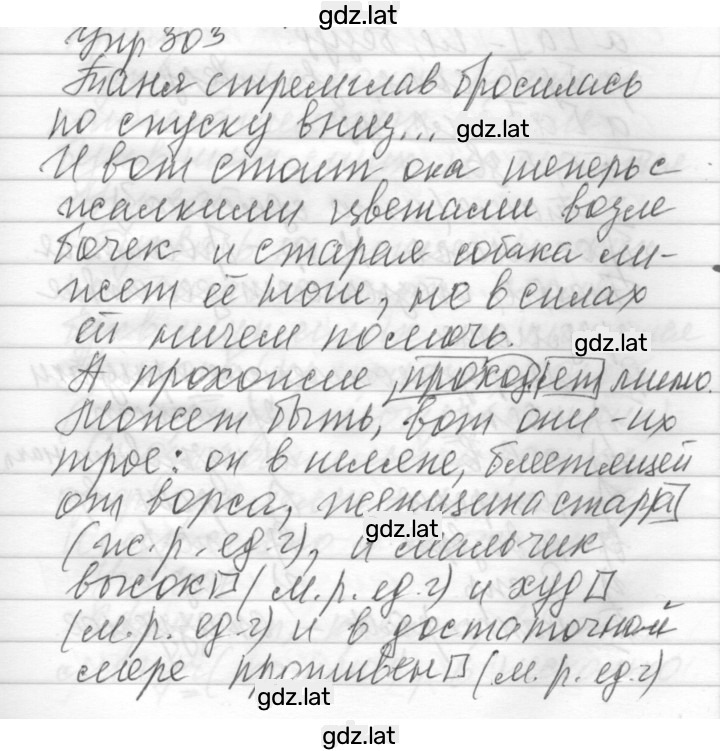 gdz.lat
Упр 303
Таня стремглав бросилась
по спуску вниз... gdz.lat
И вот стоит она теперь с
жалкими цветами возле
бочек и старая собака ли-
жет её тоже, не в силах
ей ничем помочь. gdz.lat
А прохожие проходят мимо.
Может быть, вот они - их
трое: он в шляпе, блестящей
от ворса, женщина стара
gdz.lat
(ж.р. ед.ч), и мальчик
высок (м.р. ед.ч) и худ
(м.р. ед.ч) и в достаточной
мере противен (м.р. ед.ч)
gdz.lat
gdz.lat